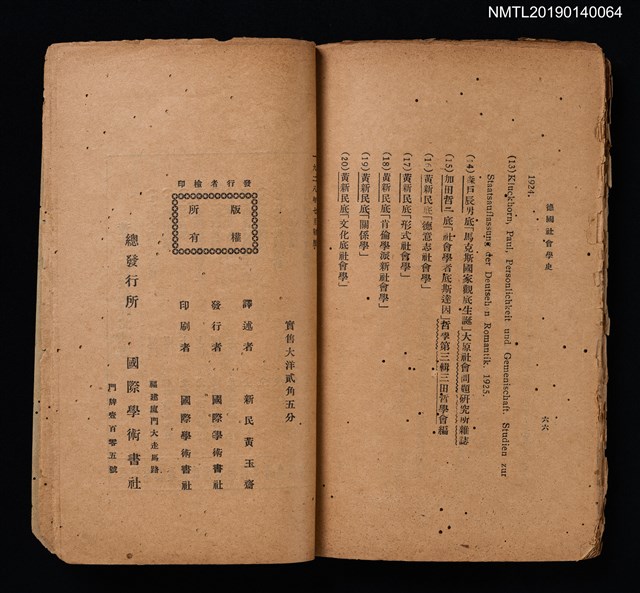 NMTL20190140064
德國社會學史
六六
1924.
(13) Kluckhorn, Paul, Personlichkeit und Gemeinschaft. Studien zur
Staatsauffassung der Deutschen Romantik. 1925.
(14) 辰男底「馬克斯國家觀底生誕」大原社會問題研究所雜誌
(15) 加田哲二底「社會學者底斯達因」哲學第三輯三田哲學會編
(16) 黃新民底「德意志社會學」
(17) 黃新民底「形式社會學」
(18) 黃新民底「首倫學派新社會學」
(19) 黃新民底「關係學」
(20) 黃新民底「文化底社會學」
實售大洋貳角五分
譯述者 新民黃玉齋
發行者 國際學術書社
印刷者 國際學術書社
發行者檢印
版權
所有
總發行所 國際學術書社
福建廈門大走馬路
門牌壹百零五號